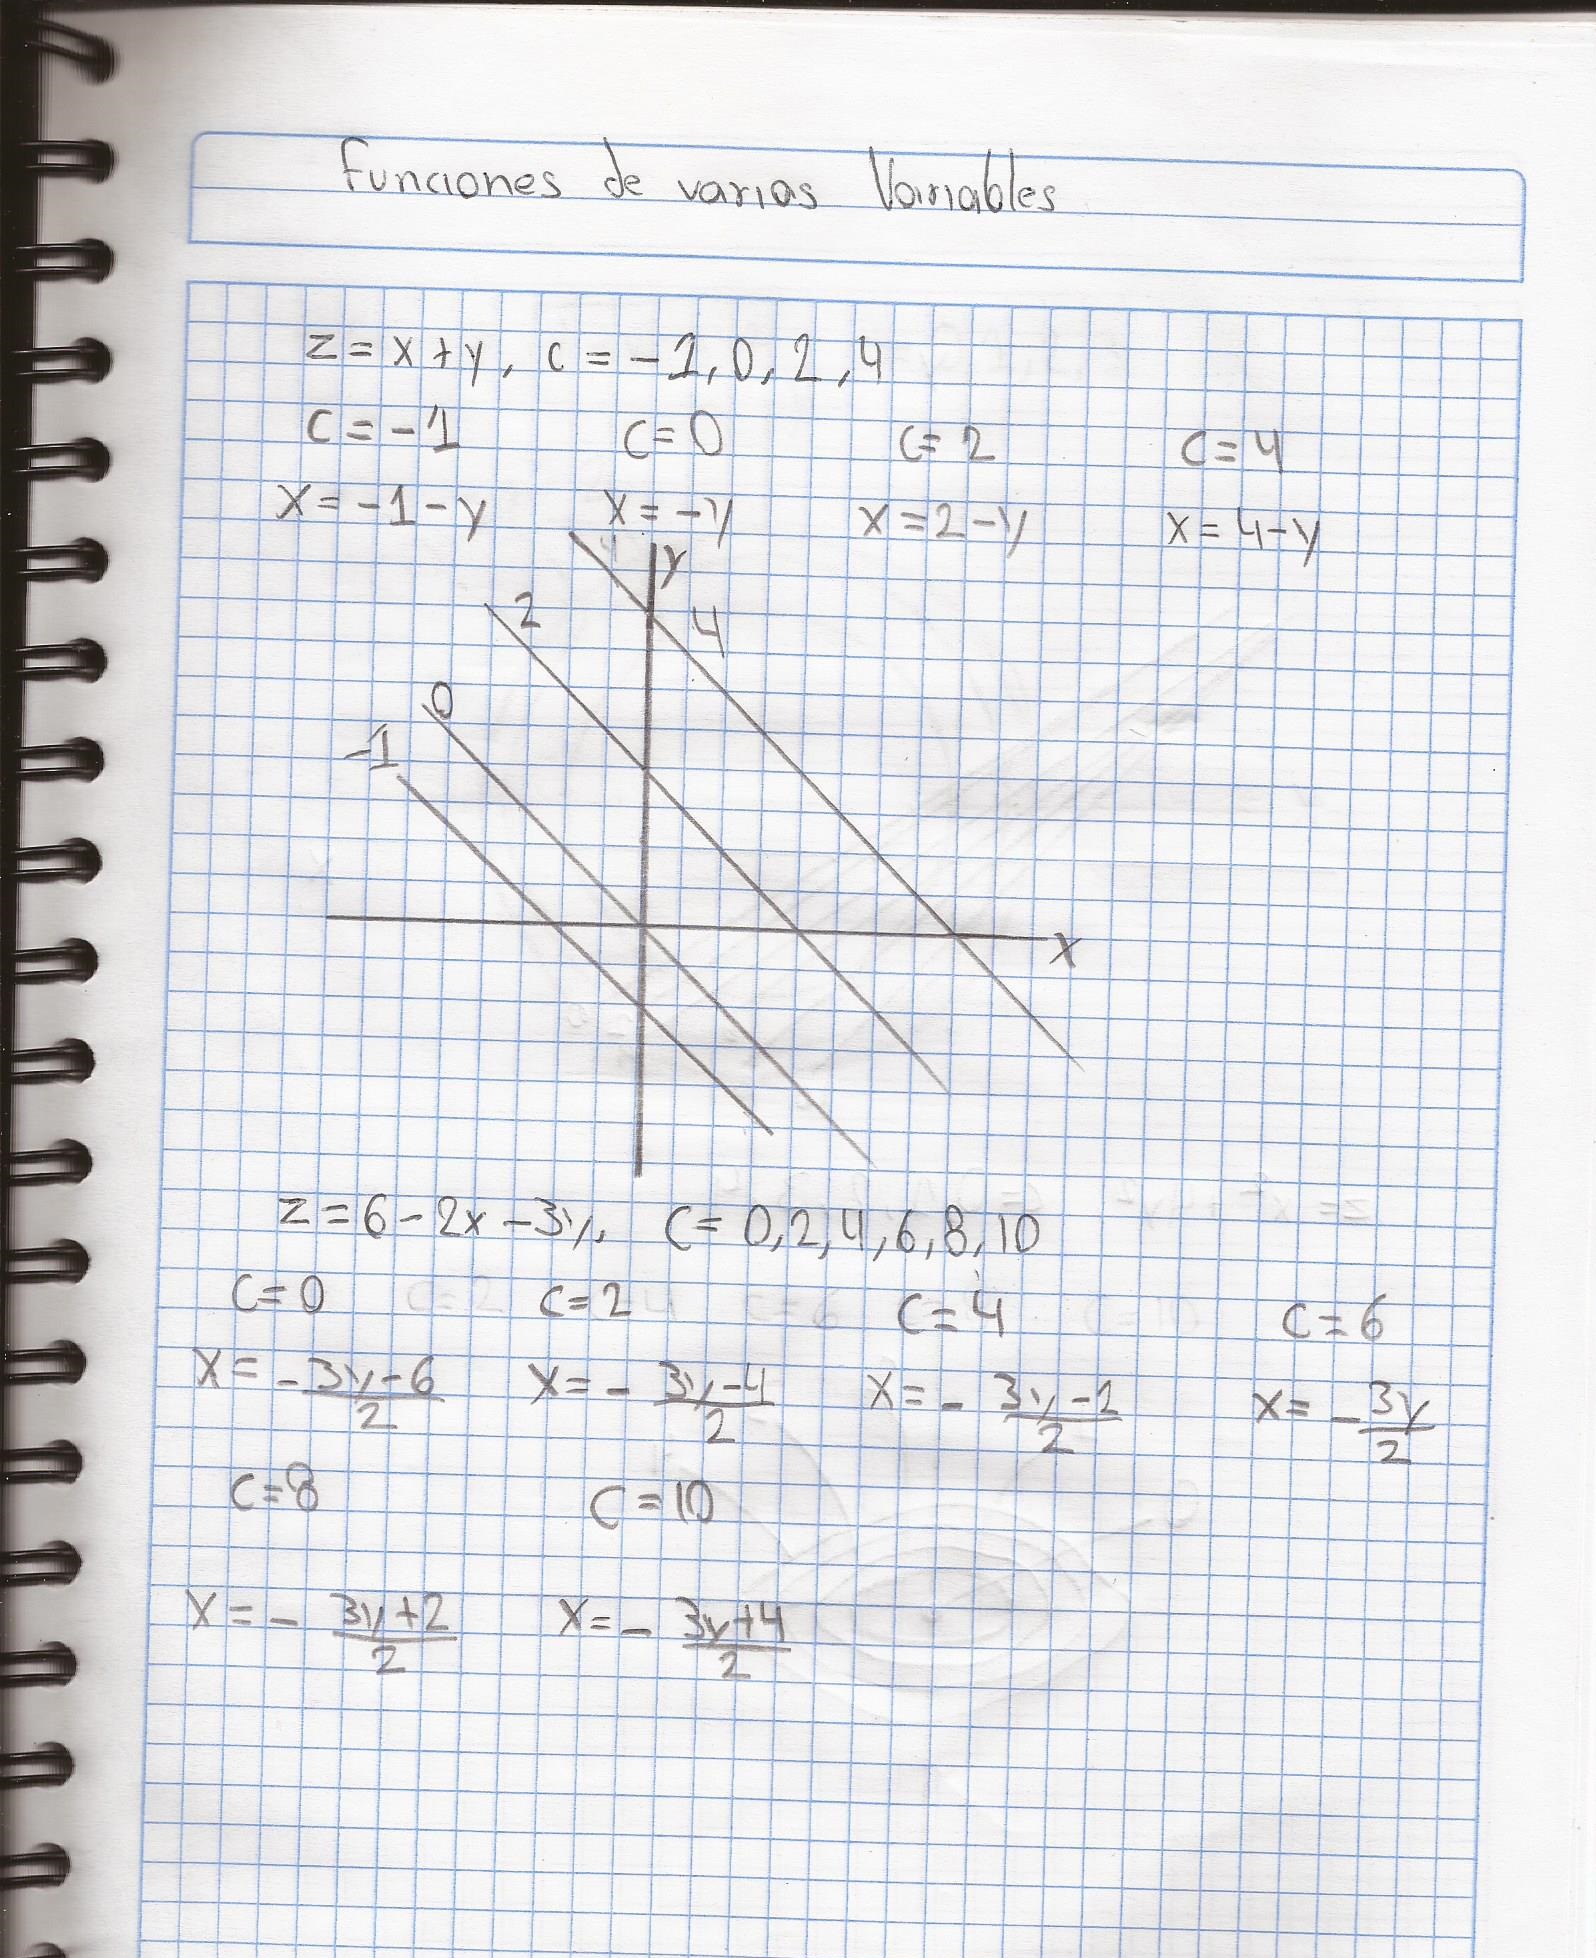 Funciones de varias Variables
z = x + y, c = -1, 0, 2, 4
C = -1 C = 0 C = 2 C = 4
X = -1 - y X = -y X = 2 - y X = 4 - y
y
2 4
0
-1
X
z = 6 - 2x - 3y, C = 0, 2, 4, 6, 8, 10
C = 0 C = 2 C = 4 C = 6
X = - 3y - 6 / 2 X = - 3y - 4 / 2 X = - 3y - 2 / 2 X = - 3y / 2
C = 8 C = 10
X = - 3y + 2 / 2 X = - 3y + 4 / 2